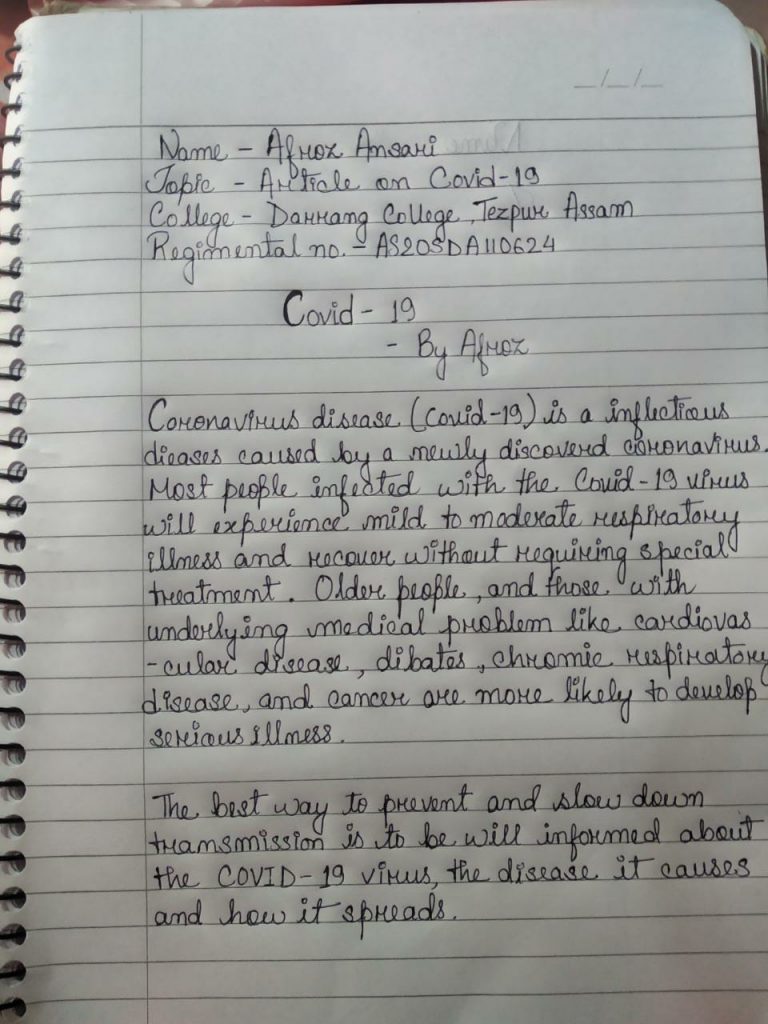 _/_/_
Name - Afroz Ansari
Topic - Article on Covid-19
College - Darrang College, Tezpur Assam
Regimental no. - AS20SDA110624
Covid - 19
- By Afroz
Coronavirus disease (covid-19) is a inflectious
dieases caused by a newly discoverd coronavirus.
Most people infected with the Covid-19 virus
will experience mild to moderate respiratory
illness and recover without requiring special
treatment. Older people, and those with
underlying medical problem like cardiovas
-cular disease, dibates, chromic respiratory
disease, and cancer are more likely to develop
serious illness.
The best way to prevent and slow down
transmission is to be will informed about
the COVID-19 virus, the disease it causes
and how it spreads.